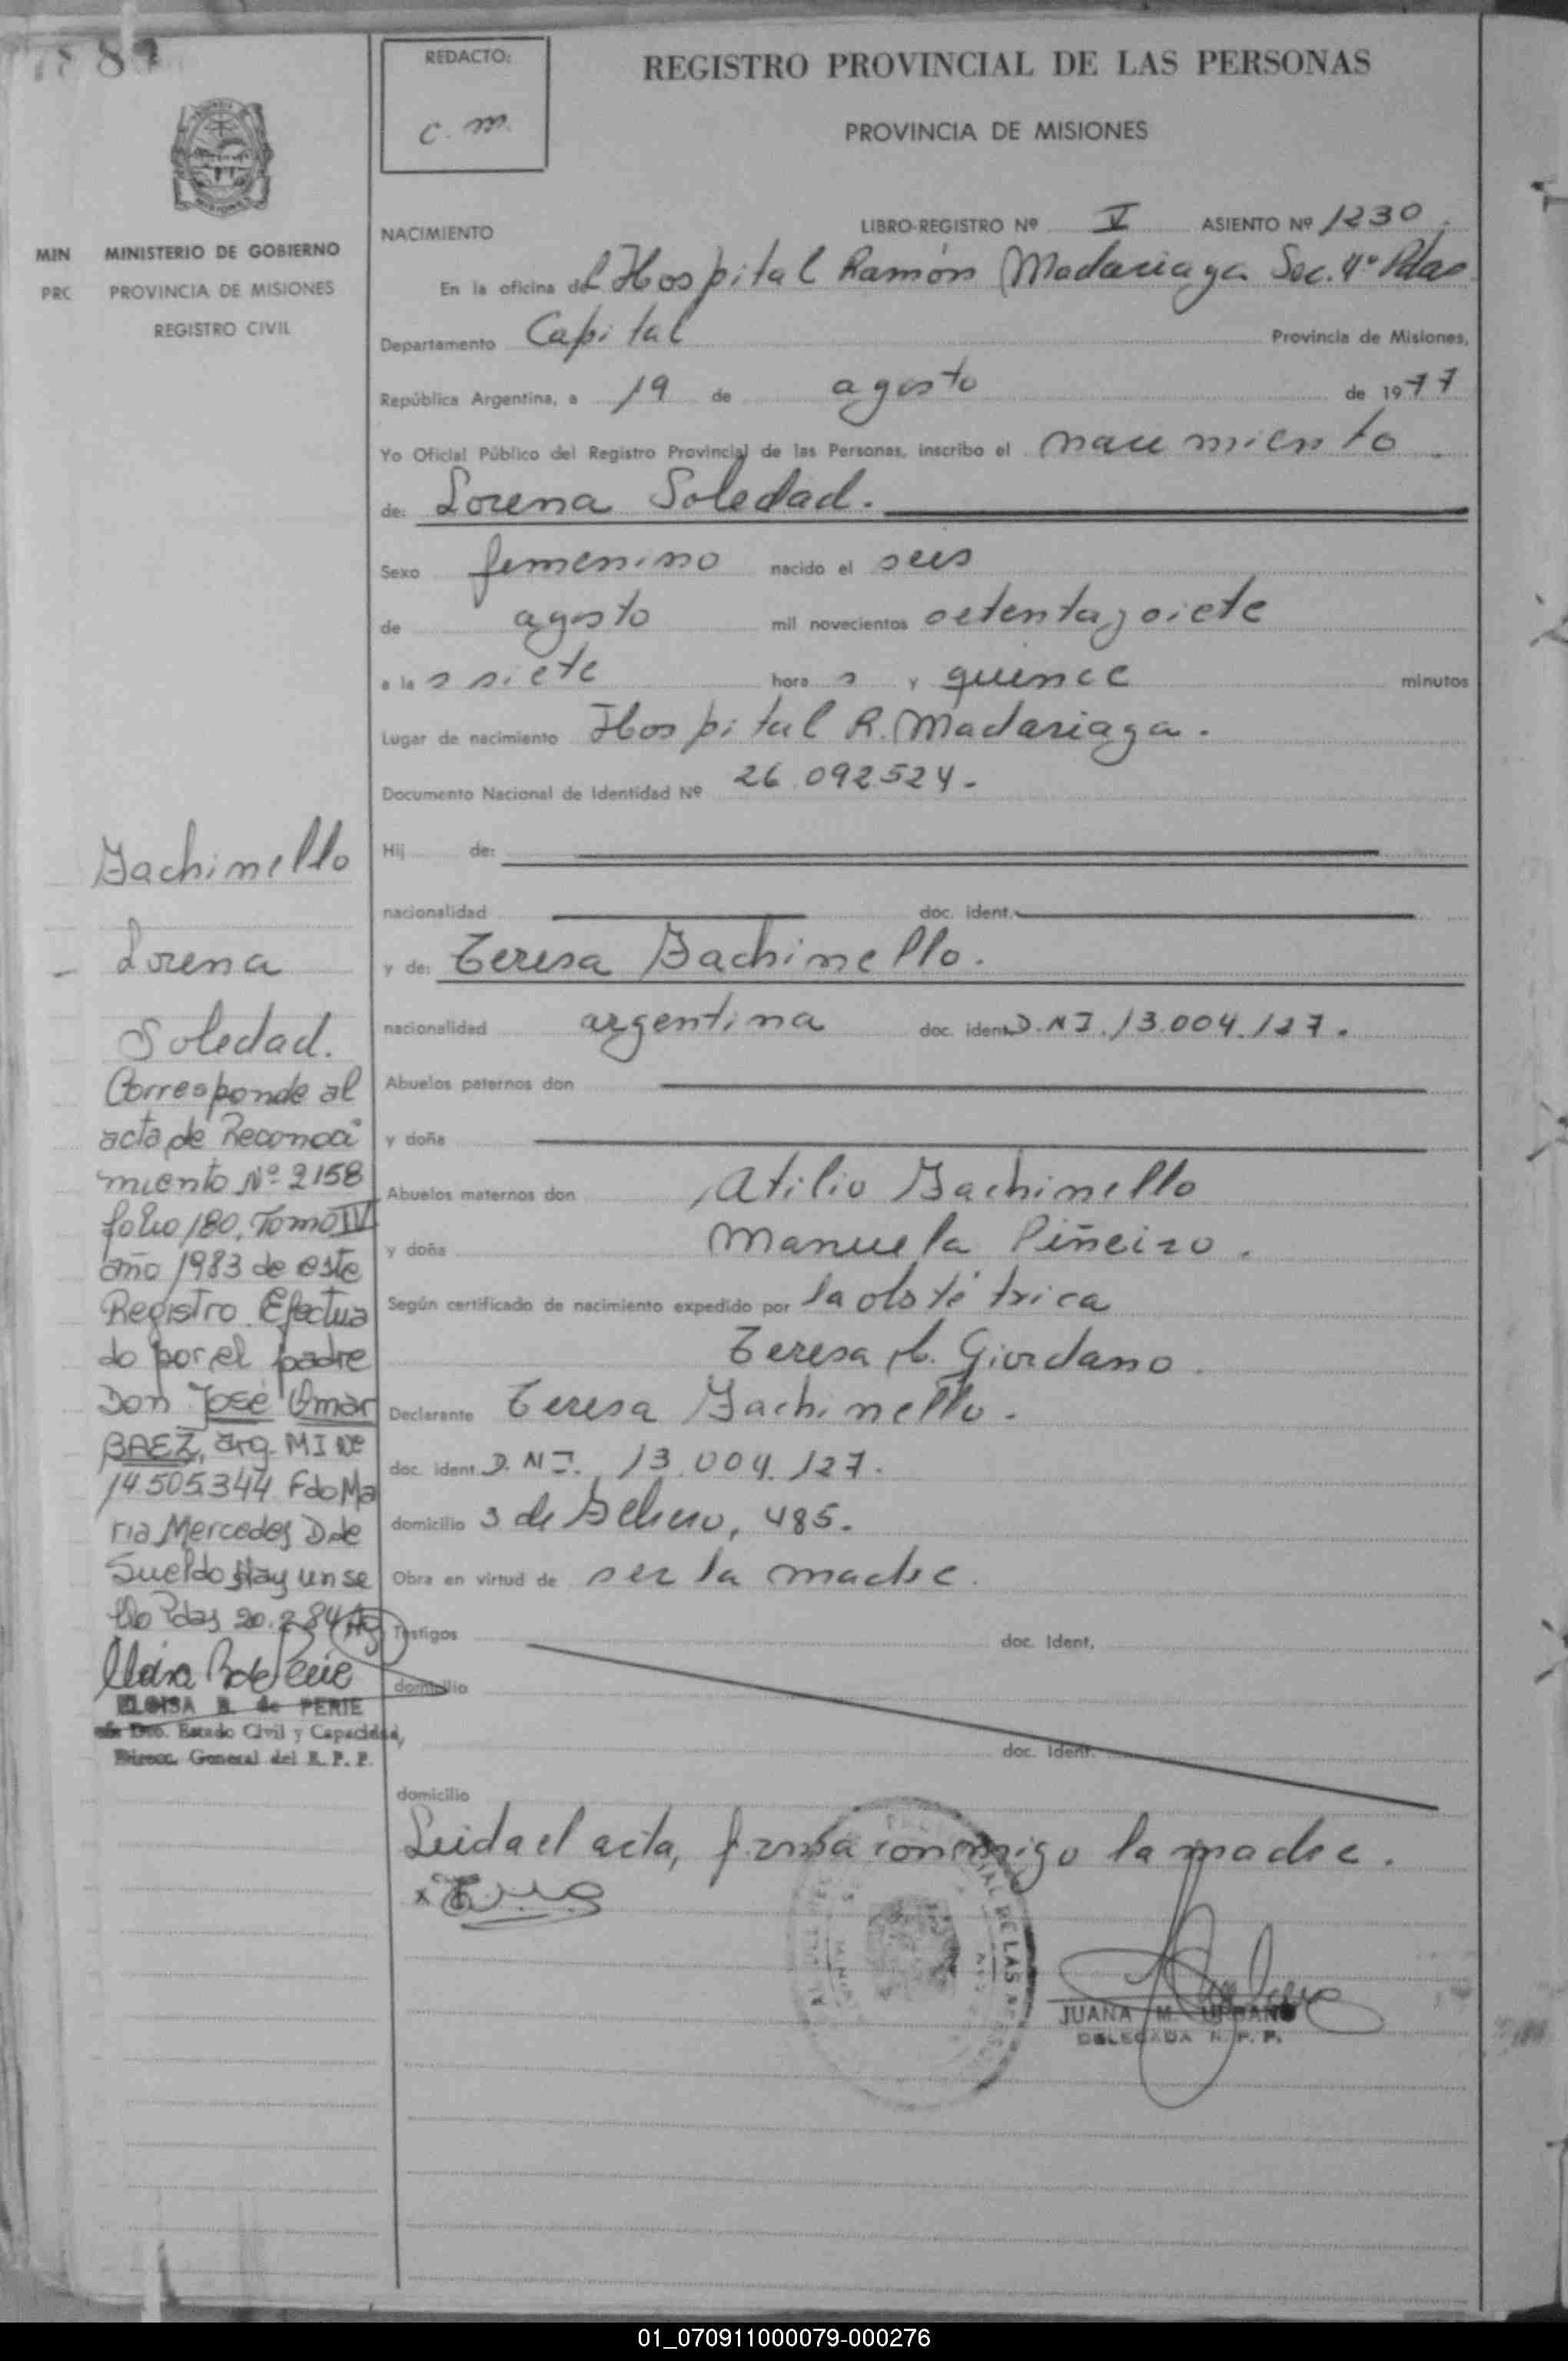 89
REDACTO:
c. m.
REGISTRO PROVINCIAL DE LAS PERSONAS
PROVINCIA DE MISIONES
MIN MINISTERIO DE GOBIERNO
PRC PROVINCIA DE MISIONES
REGISTRO CIVIL
NACIMIENTO
LIBRO-REGISTRO Nº V ASIENTO Nº 1230
En la oficina del Hospital Ramón Madariaga Sec. 4º Pdas
Departamento Capital Provincia de Misiones,
República Argentina, a 19 de agosto de 1977
Yo Oficial Público del Registro Provincial de las Personas, inscribo el nacimiento
de: Lorena Soledad.
Sexo femenino nacido el seis
de agosto mil novecientos setenta y siete
a las siete horas y quince minutos
Lugar de nacimiento Hospital R. Madariaga.
Documento Nacional de Identidad Nº 26.092.524.
Hij de:
nacionalidad doc. ident.
y de: Teresa Fachinello.
nacionalidad argentina doc. ident. D.N.I. 13.004.127.
Abuelos paternos don
y doña
Abuelos maternos don Atilio Fachinello
y doña Manuela Piñeiro.
Según certificado de nacimiento expedido por la obstétrica
Teresa Giordano.
Declarante Teresa Fachinello.
doc. ident. D.N.I. 13.004.127.
domicilio 3 de Febrero, 485.
Obra en virtud de ser la madre.
Testigos doc. Ident.
domicilio
doc. Ident.
domicilio
Leida el acta, firma conmigo la madre.
JUANA M. URBANO
DELEGADA R. P. P.
Fachinello
Lorena
Soledad.
Corresponde al
acta de Reconoci
miento Nº 2158
folio 180, Tomo IV
año 1983 de este
Registro. Efectua
do por el padre
Don José Omar
BAEZ, arg. MI Nº
14.505.344 Fdo Ma
ria Mercedes D. de
Sueldo Hay un se
llo Pdas 20.2.84
ELOISA B. de PERIE
Dto. Estado Civil y Capacidad,
Direcc. General del R. P. P.
01_070911000079-000276